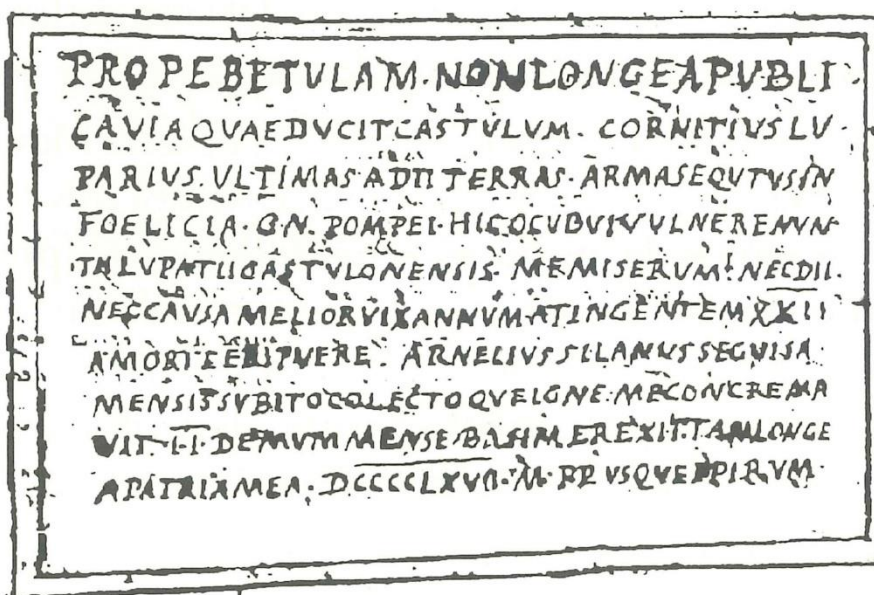 PROPEBETVLAM·NONLONGEAPVBLI
CAVIAQVAEDVCITCASTVLVM·CORNITIVSLV·
PARIVS·VLTIMASADTITERRAS·ARMASEQVTVSIN
FOELICIA·GN·POMPEI·HICOCVBVIVVLNERENVN
NECDII·
NECCAVSAMELIORVIXANNVMATINGENTEMXXII
AMORTEERIPVERE·ARNELIVSSILANVSSEGVISA
MENSISSVBITOCOLECTOQVEIGNE·MECONCREMA
VIT·II·DEMVMMENSE·BASIMEREXIT·TAMLONGE
APATRIAMEA·